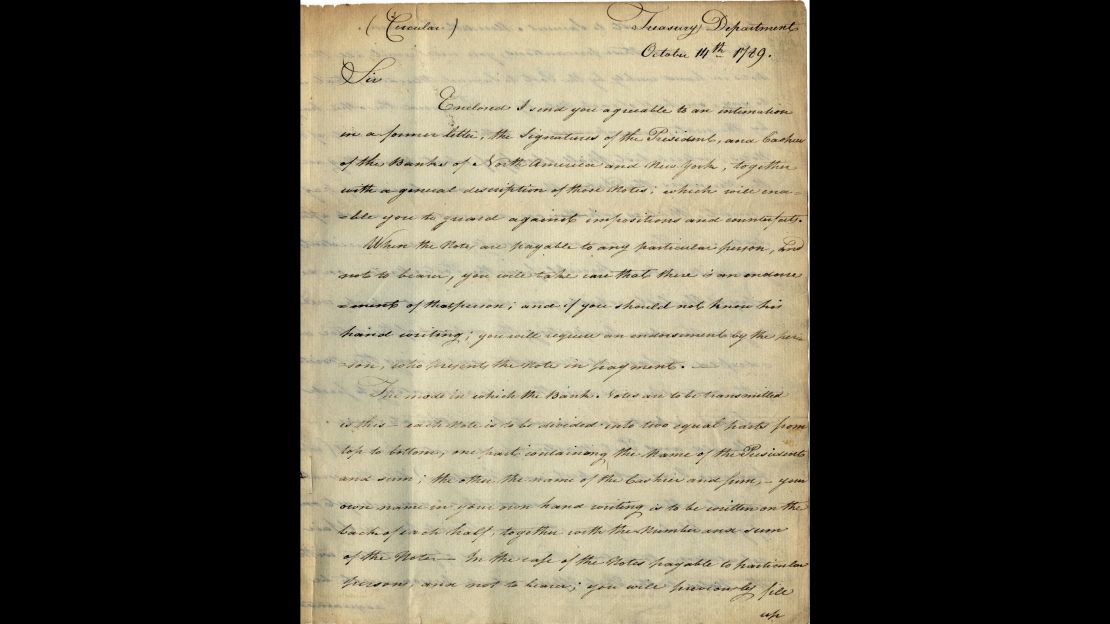 (Circular)
Treasury Department
October 14th 1789.
Sir
Enclosed I send you agreable to an intimation
in a former letter, the Signatures of the President, and Cashier
of the Banks of North America and New York, together
with a general description of those Notes; which will ena-
-ble you to guard against impositions and counterfeits.
When the Notes are payable to any particular person, and
not to bearer, you will take care that there is an endorse
-ment of that person; and if you should not know his
hand writing; you will require an endorsement by the per-
-son, who presents the Note in payment.
The mode in which the Bank Notes are to be transmitted
is this—each Note is to be divided into two equal parts from
top to bottom, one part containing the Name of the President
and sum; the other the name of the Cashier and sum,—your
own name in your own hand writing is to be written on the
back of each half, together with the Number and sum
of the Note—In the case of the Notes payable to particular
persons, and not to bearer; you will previously fill
up